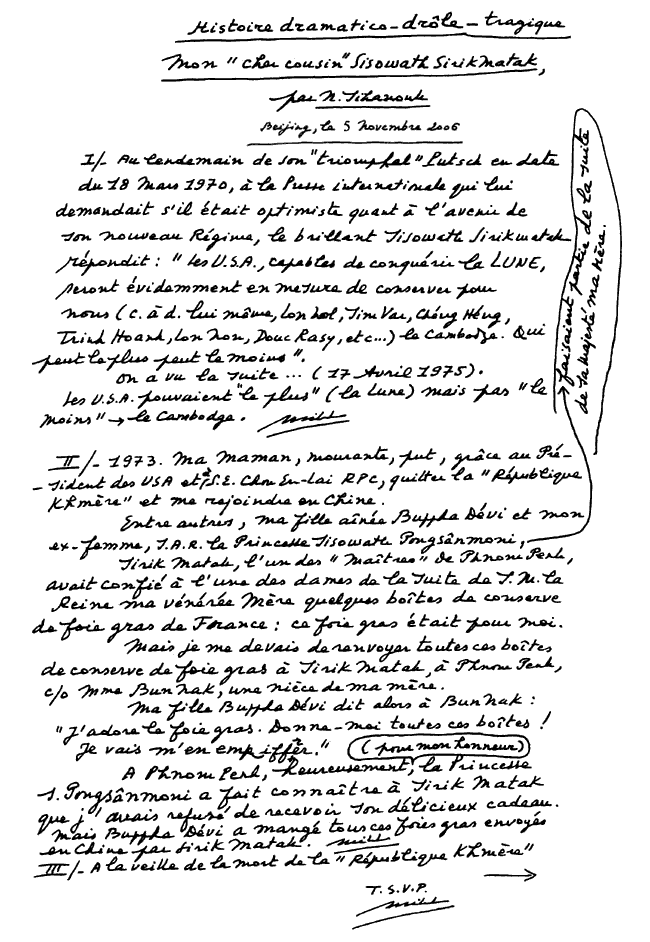 Histoire dramatico-drôle-tragique
Mon "cher cousin" Sisowath Sirik Matak,
par N. Sihanouk
Beijing, le 5 Novembre 2006
I/- Au lendemain de son "triomphal" Putsch en date
du 18 Mars 1970, à la Presse internationale qui lui
demandait s'il était optimiste quant à l'avenir de
son nouveau Régime, le brillant Sisowath Sirikmatak
répondit : "Les U.S.A., capables de conquérir la LUNE,
seront évidemment en mesure de conserver pour
nous (c. à d. lui même, Lon Nol, Sim Var, Chéng Héng,
Trinh Hoanh, Lon Non, Douc Rasy, etc...) le Cambodge. Qui
peut le plus peut le moins".
On a vu la suite ... (17 Avril 1975).
Les U.S.A. pouvaient "le plus" (la Lune) mais pas "le
moins" → le Cambodge.
II/- 1973. Ma Maman, mourante, put, grâce au Pré-
-sident des USA et à S.E. Chou En-lai RPC, quitter la "République
Khmère" et me rejoindre en Chine.
Entre autres, ma fille aînée Buppha Dévi et mon
ex-femme, S.A.R. la Princesse Sisowath Pongsânmoni,
→ faisaient partie de la suite
de Sa Majesté ma Mère.
Sirik Matak, l'un des "Maîtres" de Phnom Penh,
avait confié à l'une des dames de la suite de S.M. la
Reine ma vénérée Mère quelques boîtes de conserve
de foie gras de France : ce foie gras était pour moi.
Mais je me devais de renvoyer toutes ces boîtes
de conserve de foie gras à Sirik Matak, à Phnom Penh,
c/o Mme Bun Nak, une nièce de ma mère.
Ma fille Buppha Dévi dit alors à Bun Nak :
"J'adore le foie gras. Donne-moi toutes ces boîtes !
Je vais m'en empiffrer." (pour mon honneur)
A Phnom Penh, heureusement, la Princesse
S. Pongsânmoni a fait connaître à Sirik Matak
que j'avais refusé de recevoir son délicieux cadeau.
Mais Buppha Dévi a mangé tous ces foies gras envoyés
en Chine par Sirik Matak.
III/- A la veille de la mort de la "République Khmère"
→
T.S.V.P.